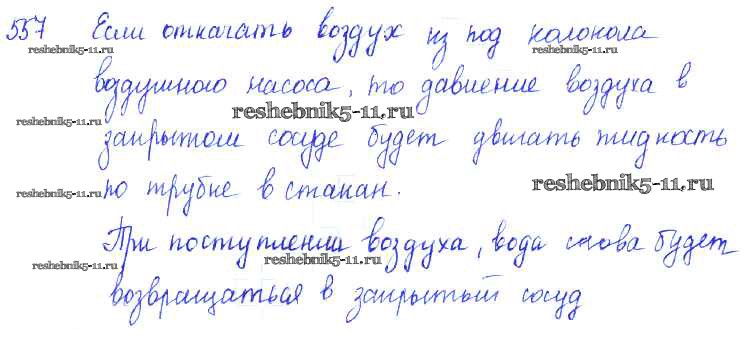 557 Если откачать воздух из под колокола
reshebnik5-11.ru reshebnik5-11.ru
воздушного насоса, то давление воздуха в
reshebnik5-11.ru reshebnik5-11.ru
закрытом сосуде будет двигать жидкость
по трубке в стакан.
reshebnik5-11.ru reshebnik5-11.ru
При поступлении воздуха, вода снова будет
reshebnik5-11.ru reshebnik5-11.ru
возвращаться в закрытый сосуд